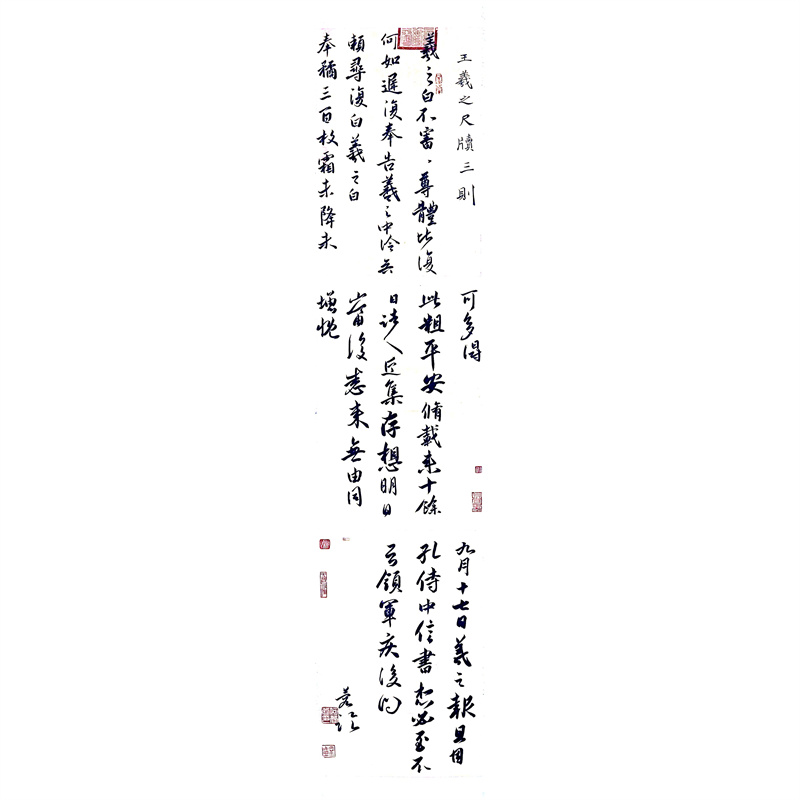 王羲之尺牘三則
羲之白不審、尊體比復
何如遲復奉告羲之中冷無
賴尋復白羲之白
奉橘三百枚霜未降未
可多得
此粗平安脩載來十餘
日諸人近集存想明日
當復悉來無由同
增慨
九月十七日羲之報且因
孔侍中信書想必至不
知領軍疾後問